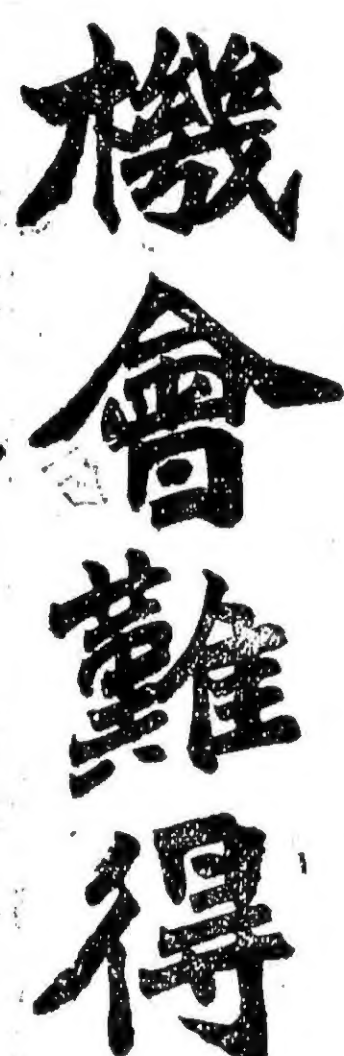 機會難得